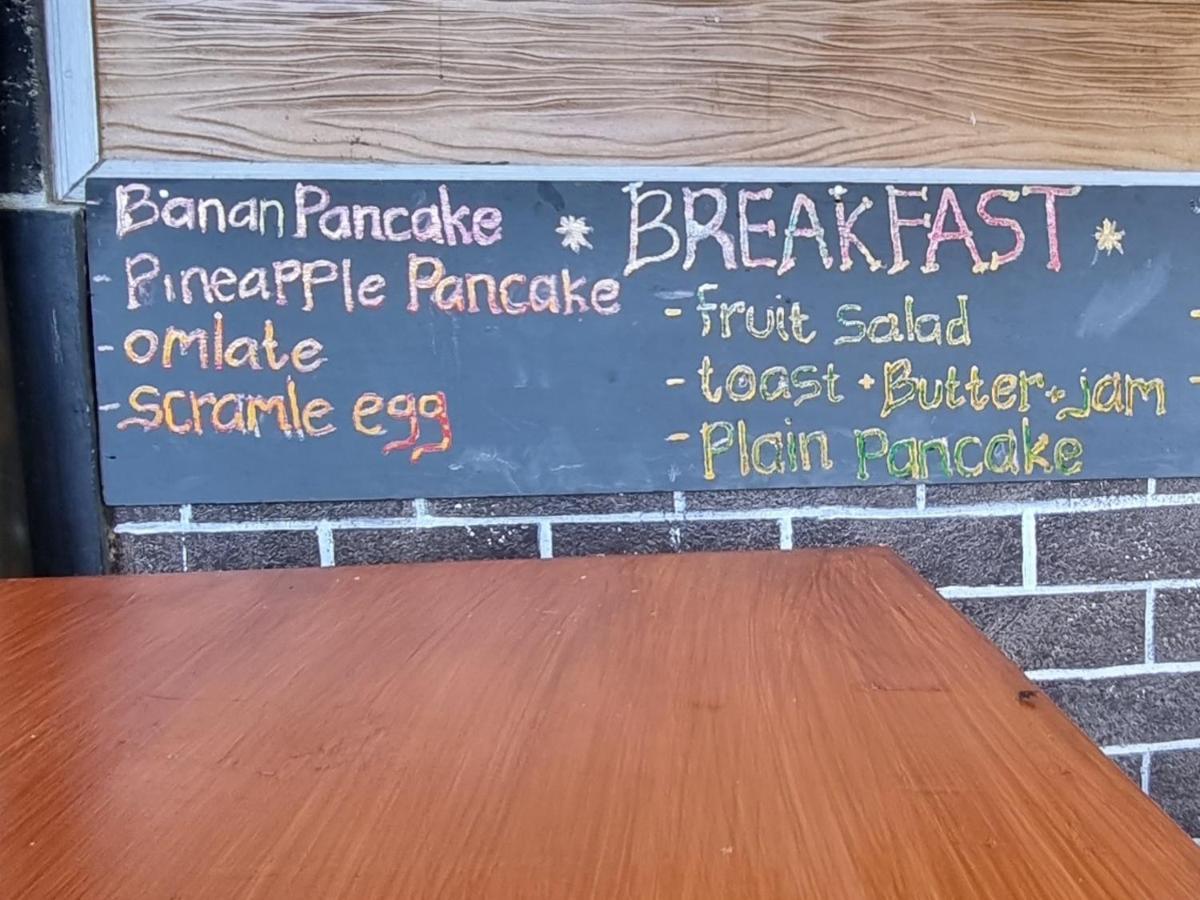 - Banan Pancake
- Pineapple Pancake
- omlate
- scramle egg
* BREAKFAST *
- fruit salad
- toast + Butter + jam
- Plain Pancake